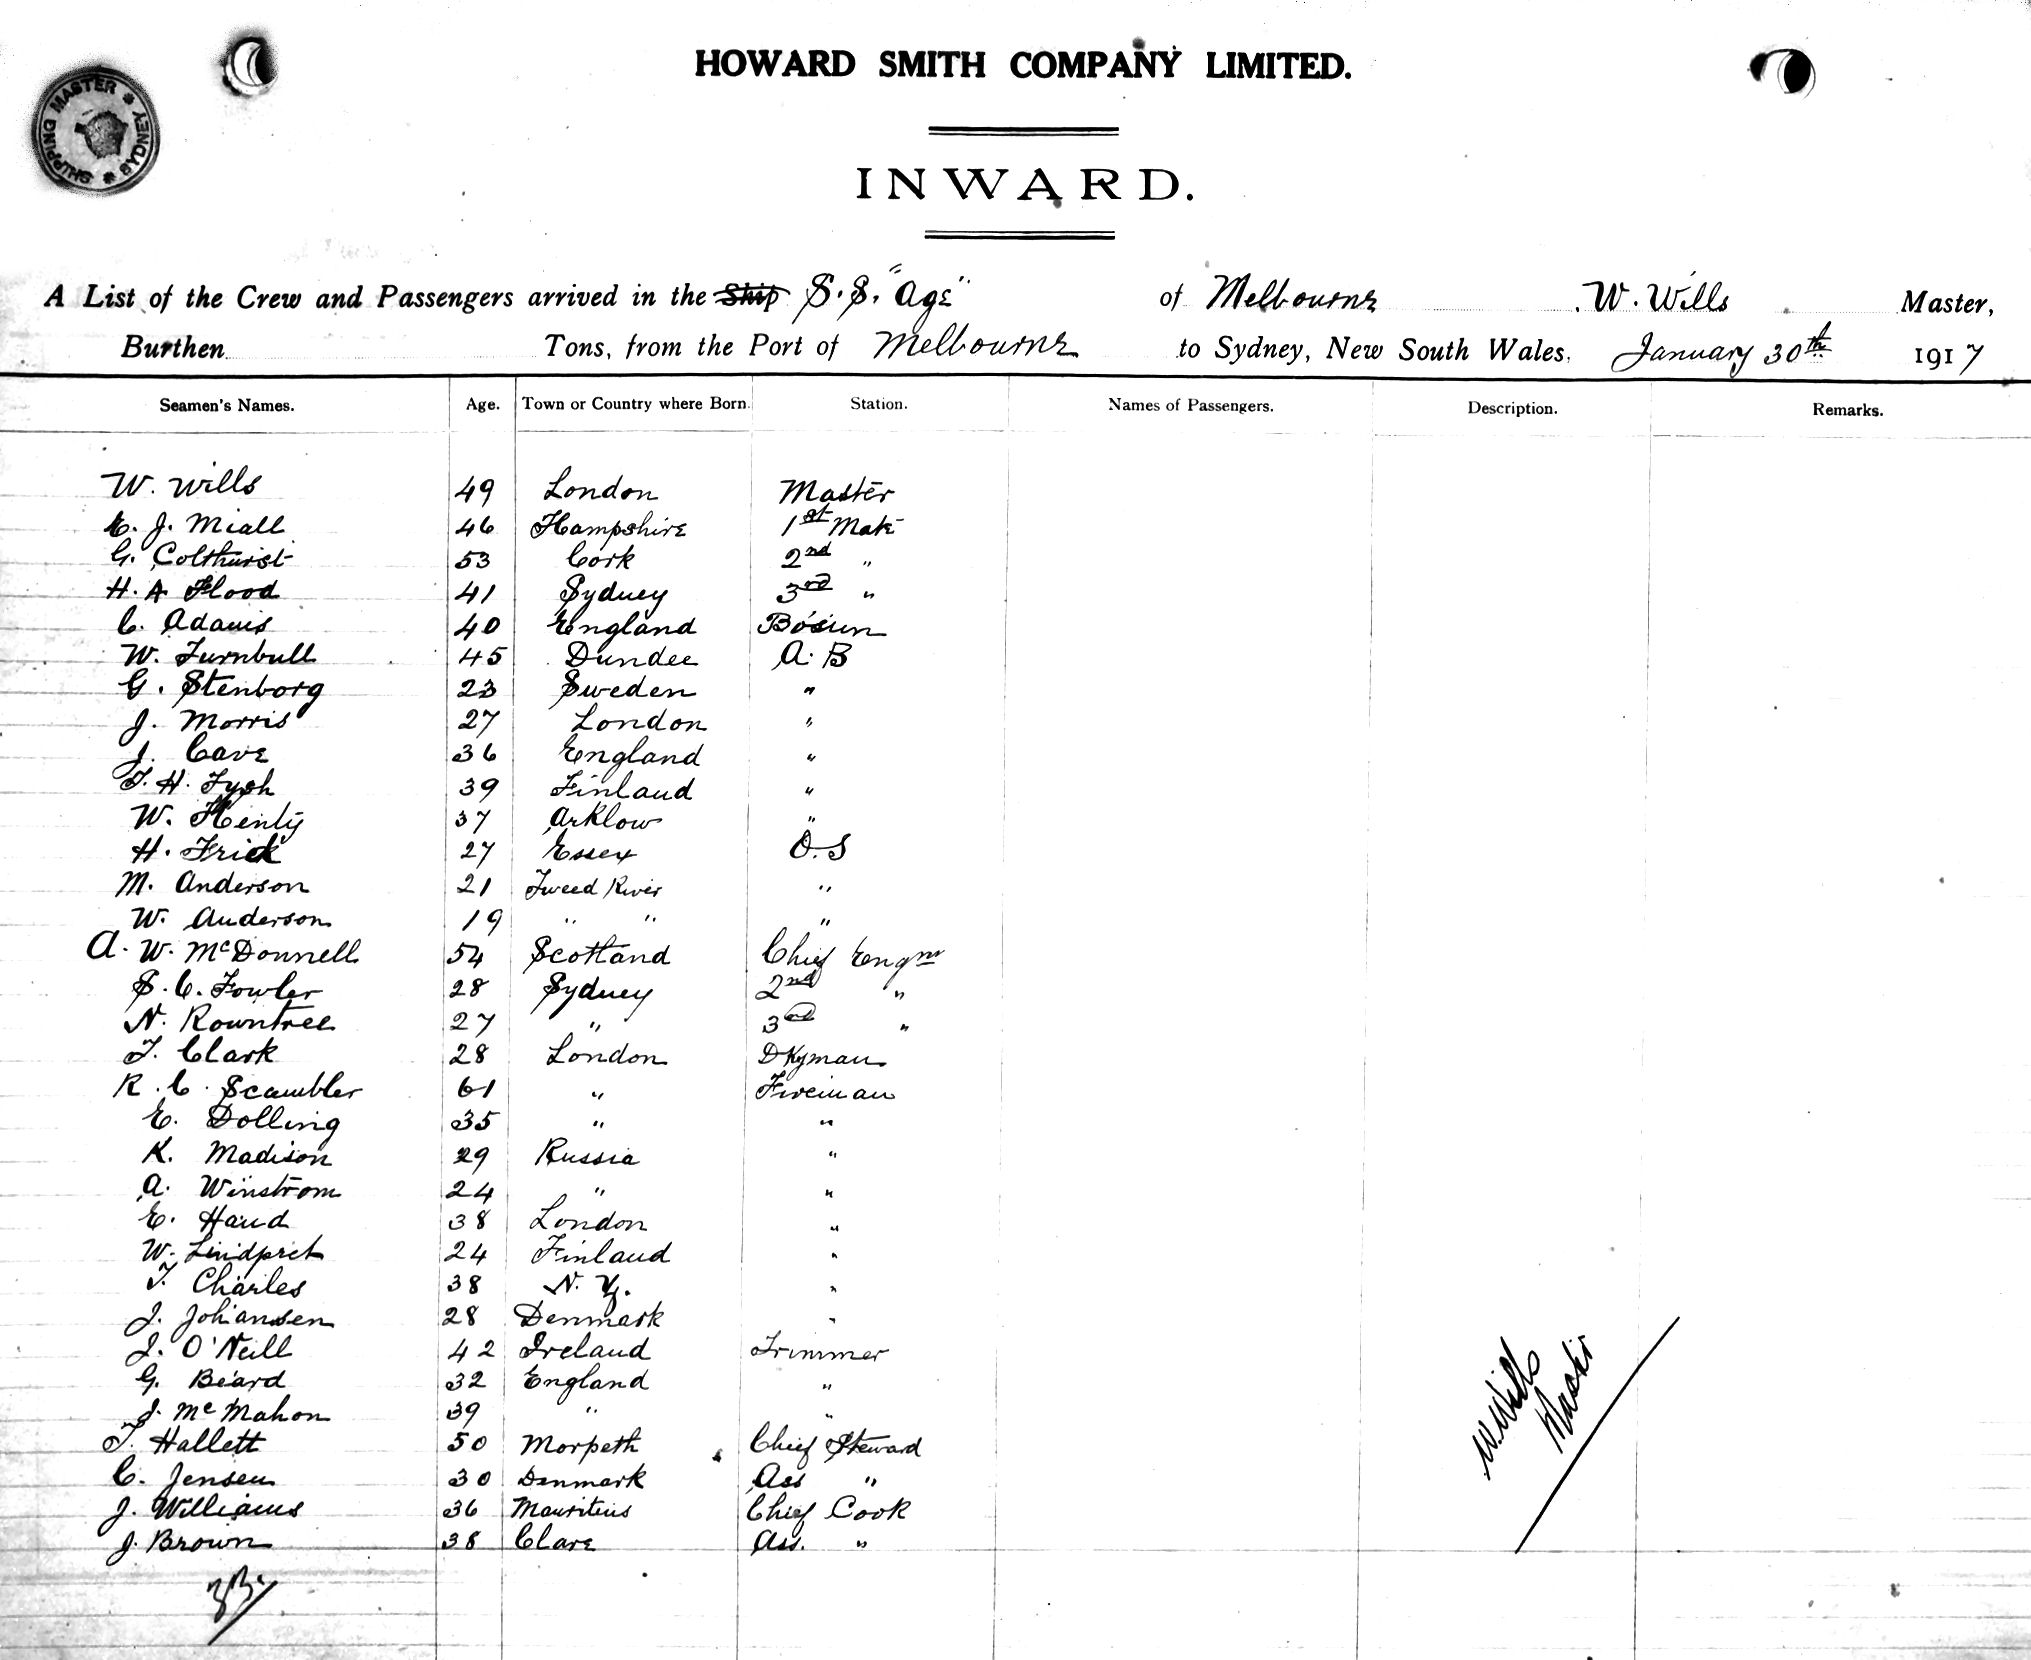 SHIPPING MASTER * SYDNEY *
HOWARD SMITH COMPANY LIMITED.
INWARD.
A List of the Crew and Passengers arrived in the Ship S.S. "Age" of Melbourne W. Wills Master,
Burthen Tons, from the Port of Melbourne to Sydney, New South Wales, January 30th 1917
Seamen's Names. Age. Town or Country where Born. Station. Names of Passengers. Description. Remarks.
W. Wills 49 London Master
E. J. Miall 46 Hampshire 1st Mate
G. Colthurst 53 Cork 2nd "
H. A Flood 41 Sydney 3rd "
C. Adams 40 England Bosun
W. Turnbull 45 Dundee A. B
G. Stenborg 23 Sweden "
J. Morris 27 London "
J. Cave 36 England "
T. H. Tysh 39 Finland "
W. Henly 37 Arklow "
H. Frick 27 Essex O. S
M. Anderson 21 Tweed River "
W. Anderson 19 " " "
A. W. McDonnell 54 Scotland Chief Engnr
S. C. Fowler 28 Sydney 2nd "
N. Rowntree 27 " 3rd "
T. Clark 28 London Dkyman
R. C. Scambler 61 " Fireman
E. Dolling 35 " "
K. Madison 29 Russia "
A. Winstrom 24 " "
E. Hand 38 London "
W. 24 Finland "
T. Charles 38 N. Z. "
J. Johansen 28 Denmark "
J. O'Neill 42 Ireland Trimmer
G. Beard 32 England "
J. McMahon 39 " "
T. Hallett 50 Morpeth Chief Steward
C. Jensen 30 Denmark Ass "
J. Williams 36 Mauritius Chief Cook
J. Brown 38 Clare Ass. "
33
W. Wills
Master